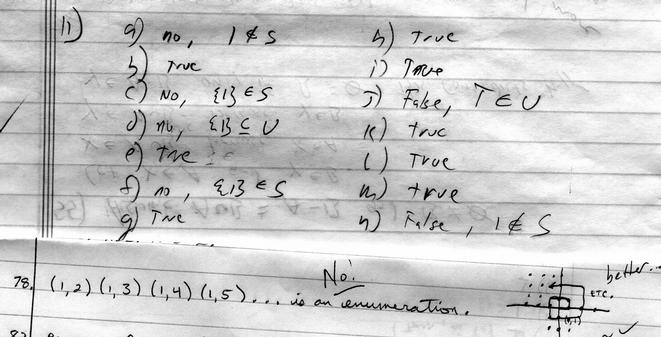 11) a) no, 1 ∉ S
b) True
c) No, {1} ∈ S
d) no, {1} ⊆ U
e) True
f) no, {1} ∈ S
g) True
h) True
i) True
j) False, T ∈ U
k) true
l) True
m) true
n) False, 1 ∉ S
No!
78. (1,2) (1,3) (1,4) (1,5) ... is an enumeration.
better...
ETC.
(1,1)